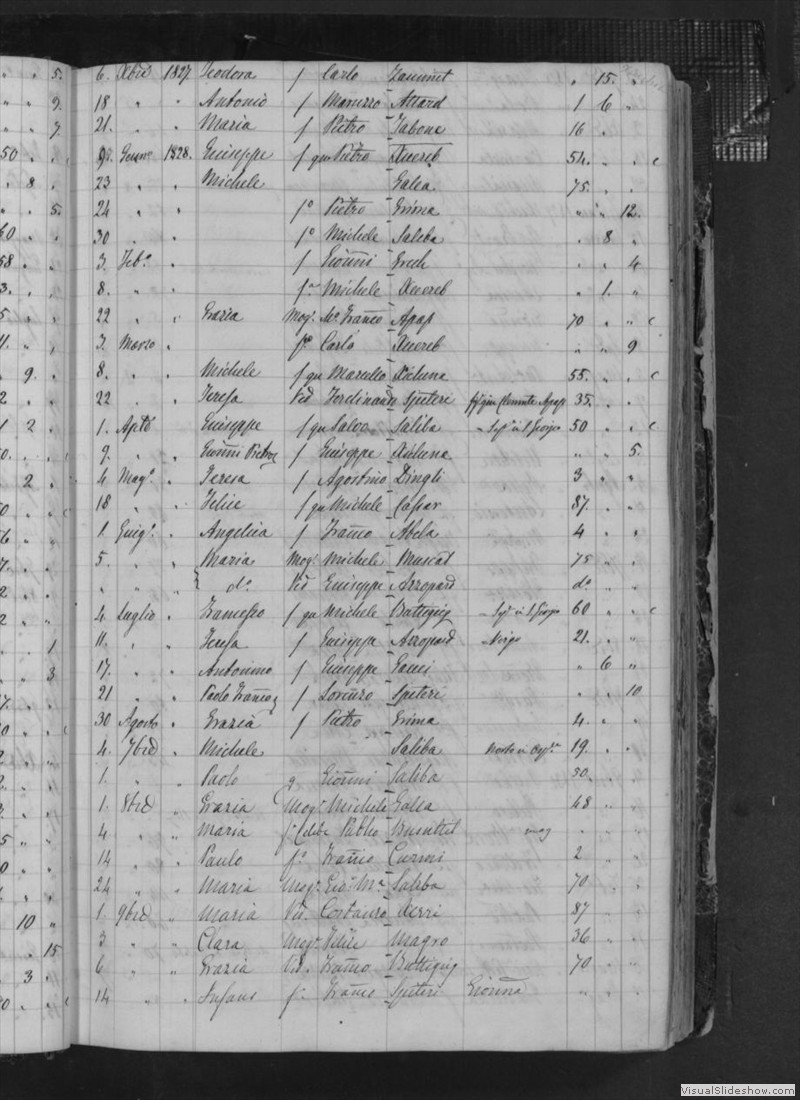 5. 6. Xbre 1827 Teodora f Carlo Zammit " 15. "
9. 18 " " Antonio f Marizzo Attard 1 6 "
7. 21. " " Maria f Pietro Tabone 16 "
50 . . 9. Genn. 1828. Giuseppe f qu Pietro Xuereb 54. . . c
8. 23 " " Michele Galea 75. . .
5. 24 " " fo Pietro Grima " " 12.
60 30 . . fo Michele Saliba . 8 "
58 3. Feb. . f Gionni Grech . . 4
3. 8. " . f Michele Xuereb . 1. "
5 22 " . Grazia Mog. Franco Apap 70 . " c
11. 3. Marzo . fo Carlo Xuereb " " 9
9. 8. " . Michele f qu Marcello Xicluna 55. . . c
2 22 " . Teresa Ved Ferdinando Spiteri f qm Clemente Apap 35. . .
1 2 1. Aple . Giuseppe f qu Salvo Saliba 50 . . c
9. " " Gionni Pietro f Giuseppe Xicluna " " 5.
2 4 Mago. " Teresa f Agostino Dingli 3 " "
18 " " Felice f qu Michele Caspar 87. . .
1. Giugo. " Angelica f Franco Abela 4 . "
5. " " Maria Mog. Michele Muscat 75 " "
" " " do. Ved Giuseppe Azzopard do. . .
2 4 Luglio . Francesco f qu Michele Buttigieg 60 . . c
1 11. " " Teresa f Giuseppe Azzopard 21. . "
3 17. " " Antonino f Giuseppe Gauci " 6 "
21 " " Paolo Franco f Lorenzo Spiteri . . 10
30 Agosto . Grazia f Pietro Grima 4. . .
4. 7bre . Michele Saliba 19. . .
1. " " Paolo g Gionni Saliba 30. . .
1. 8bre " Grazia Mog. Michele Galea 48 " "
4 " " Maria Pablo Busuttil
14 " " Paulo fo Franco Curmi 2 . .
24 " " Maria Mog. Gio. Ma Saliba 70. . .
10 1. 9bre " Maria Ved. Costanzo Xerri 87 " "
15 3 " " Clara Mog. Felice Magro 36 " .
3. 6 " " Grazia Ved. Franco Buttigieg 70 " .
14 " " Infans f. Franco Spiteri Gionna " " .
VisualSlideshow.com